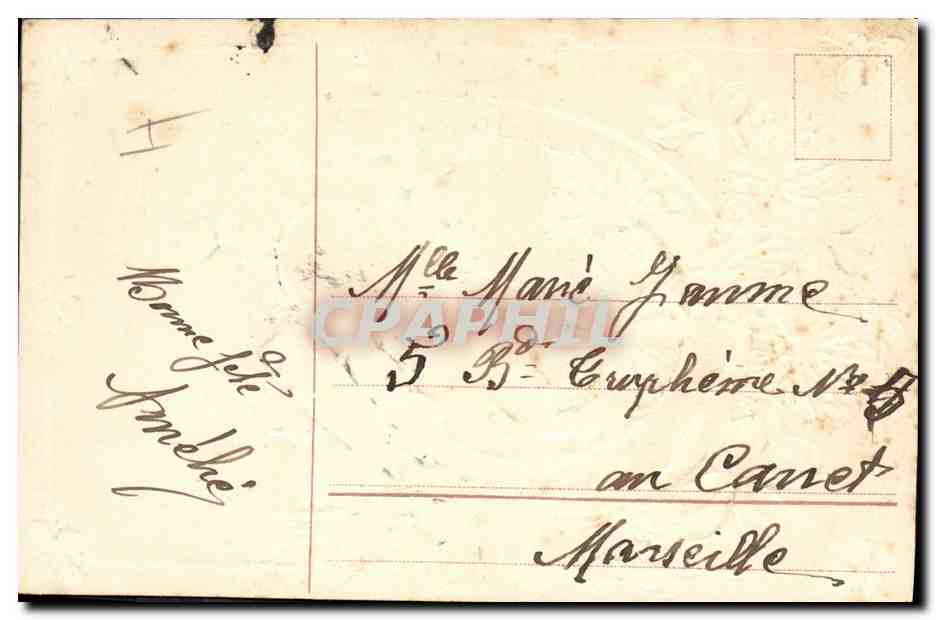 H
Bonne fête
Mlle Marie Jaume
5 Bd Truphème No
au Canet
Marseille
CPAPHIL